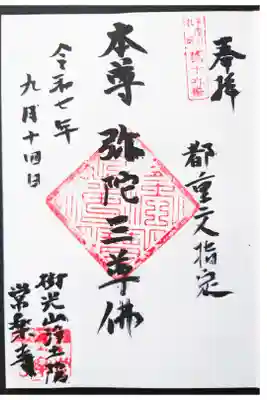 奉拝
都重文指定
本尊 弥陀三尊佛
令和七年
九月十四日
御光山浄土院
常楽寺